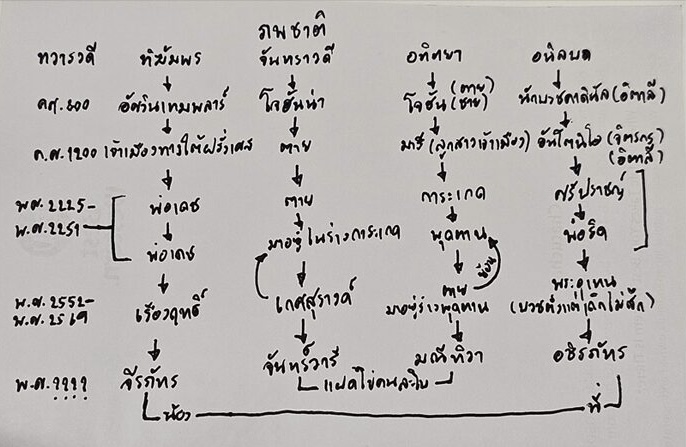 ภพชาติ
ทวารวดี ทิฆัมพร จันทราวดี อทิตยา อนิลบถ
คศ.800 อัศวินเทมพลาร์ โจฮันน่า โจฮัน (ตาย) (ชาย) นักบวชคาดินัล (อิตาลี)
ค.ศ.1200 เจ้าเมืองทางใต้ฝรั่งเศส ตาย มารี (ลูกสาวเจ้าเมือง) อันโตนิโอ (จิตรกร) (อิตาลี)
พ่อเดช ตาย การะเกด ศรีปราชญ์
พศ.2225-
พ.ศ.2251
พ่อเดช มาอยู่ในร่างการะเกด พุดตาน พ่อริด
ย้อน
พ.ศ.2552-
พ.ศ.2569
เรืองฤทธิ์ เกศสุรางค์ ตาย
มาอยู่ร่างพุดตาน
พระอุเทน
(บวชตั้งแต่เด็กไม่สึก)
พ.ศ.???? จีรภัทร จันทร์วารี มณีทิวา อชิรภัทร
แฝดไข่คนละใบ
น้อง พี่